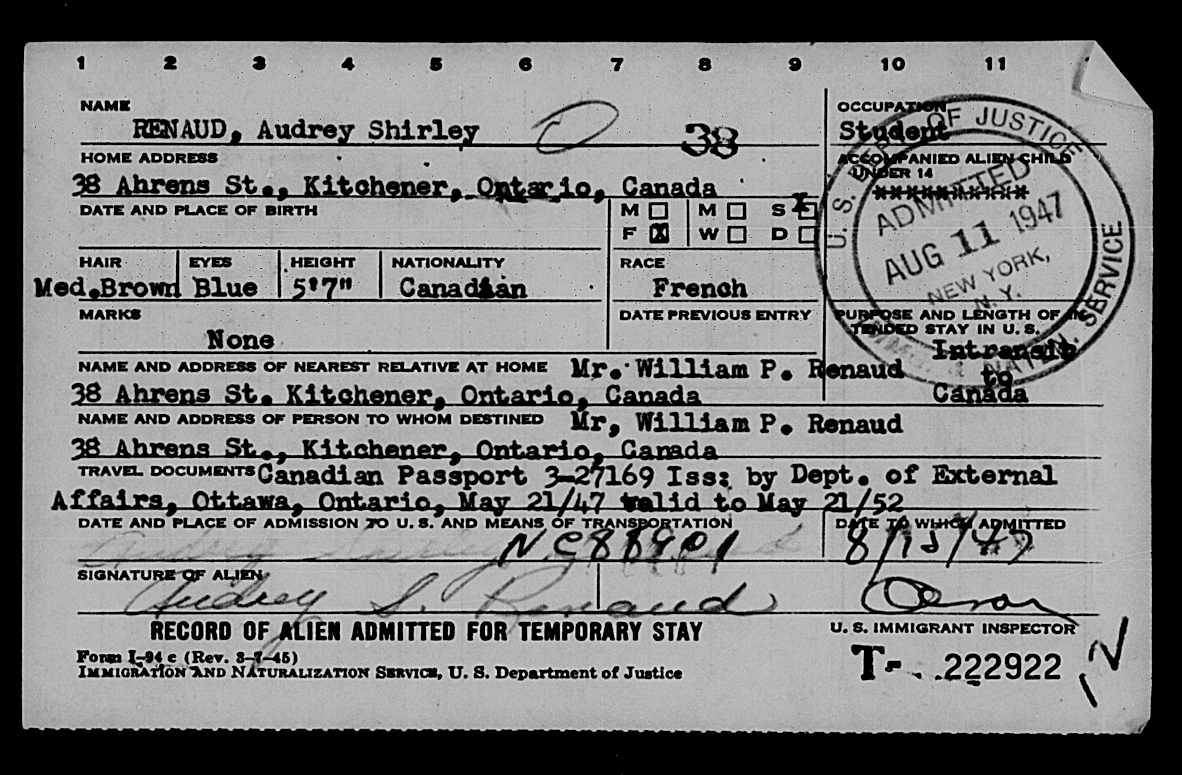 1 2 3 4 5 6 7 8 9 10 11
NAME
RENAUD, Audrey Shirley
38
OCCUPATION
Student
HOME ADDRESS
38 Ahrens St., Kitchener, Ontario, Canada
ACCOMPANIED ALIEN CHILD
UNDER 14
xxxxxxxxxxx
DATE AND PLACE OF BIRTH
M M S X
F X W D
U. S. DEPT. OF JUSTICE
ADMITTED
AUG 11 1947
NEW YORK,
N. Y.
SERVICE
HAIR EYES HEIGHT NATIONALITY RACE
Med.Brown Blue 5'7" Canadian French
MARKS
None
DATE PREVIOUS ENTRY
PURPOSE AND LENGTH OF IN-
TENDED STAY IN U. S.
Intransit
to
Canada
NAME AND ADDRESS OF NEAREST RELATIVE AT HOME Mr. William P. Renaud
38 Ahrens St. Kitchener, Ontario, Canada
NAME AND ADDRESS OF PERSON TO WHOM DESTINED Mr, William P. Renaud
38 Ahrens St., Kitchener, Ontario, Canada
TRAVEL DOCUMENTS Canadian Passport 3-27169 Iss: by Dept. of External
Affairs, Ottawa, Ontario, May 21/47 valid to May 21/52
DATE AND PLACE OF ADMISSION TO U. S. AND MEANS OF TRANSPORTATION
NC88901
DATE TO WHICH ADMITTED
8/15/47
SIGNATURE OF ALIEN
Audrey S. Renaud
RECORD OF ALIEN ADMITTED FOR TEMPORARY STAY
U. S. IMMIGRANT INSPECTOR
Form I-94 c (Rev. 3-7-45)
IMMIGRATION AND NATURALIZATION SERVICE, U. S. Department of Justice
T- 222922